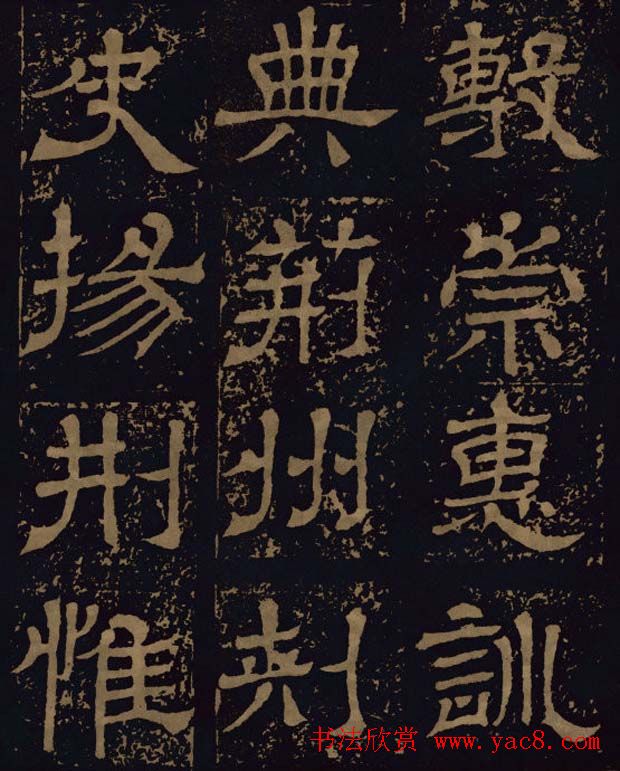 毄崇惠訓
典荊州刺
史揚刑惟
书法欣赏 www.yac8.com